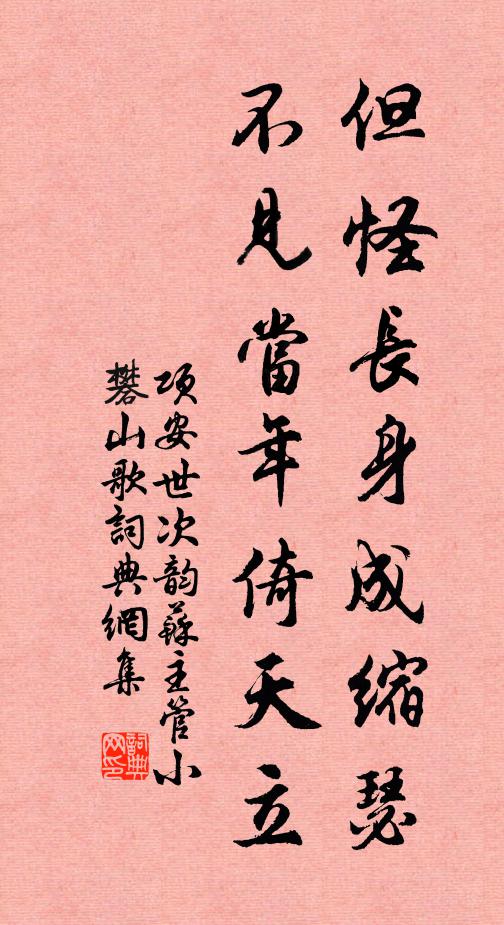 但怪長身成缩瑟
不見當年倚天立
項安世次韵蘇主管小
礬山歌詞典網集
詞典
网印